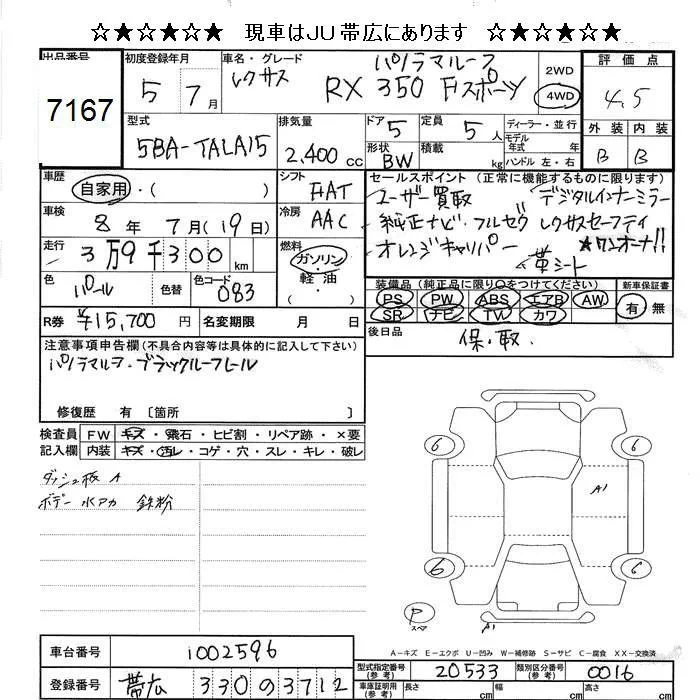 ☆★☆★☆ 現車はJU帯広にあります ☆★☆★☆
出品番号 初度登録年月 車名・グレード パノラマルーフ 2WD 評価点
7167 5 7月 レクサス RX 350 Fスポーツ 4WD 4.5
型式 排気量 ドア 5 定員 5人 ディーラー・並行 外装 内装
5BA-TALA15 2,400cc 形状 BW 積載 kg モデル年式 年式 ハンドル 左・右 B B
車歴 自家用・( ) シフト FAT セールスポイント (正常に機能するものに限ります)
ユーザー買取 デジタルインナーミラー
車検 8年 7月(19日) 冷房 AAC 純正ナビ・フルセグ レクサスセーフティ
走行 3万9千300km 燃料 ガソリン・軽油 オレンジキャリパー ★ワンオーナ!!
革シート
色 パール 色替 色コード 083 装備品(純正品に限り○をつけてください) 新車保証書
PS PW ABS エアB AW 有 無
SR ナビ TV カワ
R券 ¥15,700円 名変期限 月 日 後日品 保・取.
注意事項申告欄(不具合内容等は具体的に記入して下さい)
パノラマルーフ・ブラックルーフレール
修復歴 有 〔箇所 〕
検査員 FW キズ・飛石・ヒビ割・リペア跡・×要
記入欄 内装 キズ・汚レ・コゲ・穴・スレ・キレ・破レ
ダッシュ板 A
ボデー 水アカ 鉄粉
6 6
A1
6 6
P スペア
A1
A-キズ E-エクボ U-凹み W-補修跡 S-サビ C-腐食 XX-交換済
車台番号 1002596
型式指定番号(参考) 20533 類別区分番号(参考) 0016
登録番号 帯広 330 の 3712
車庫証明用(参考) 長さ cm 幅 cm 高さ cm